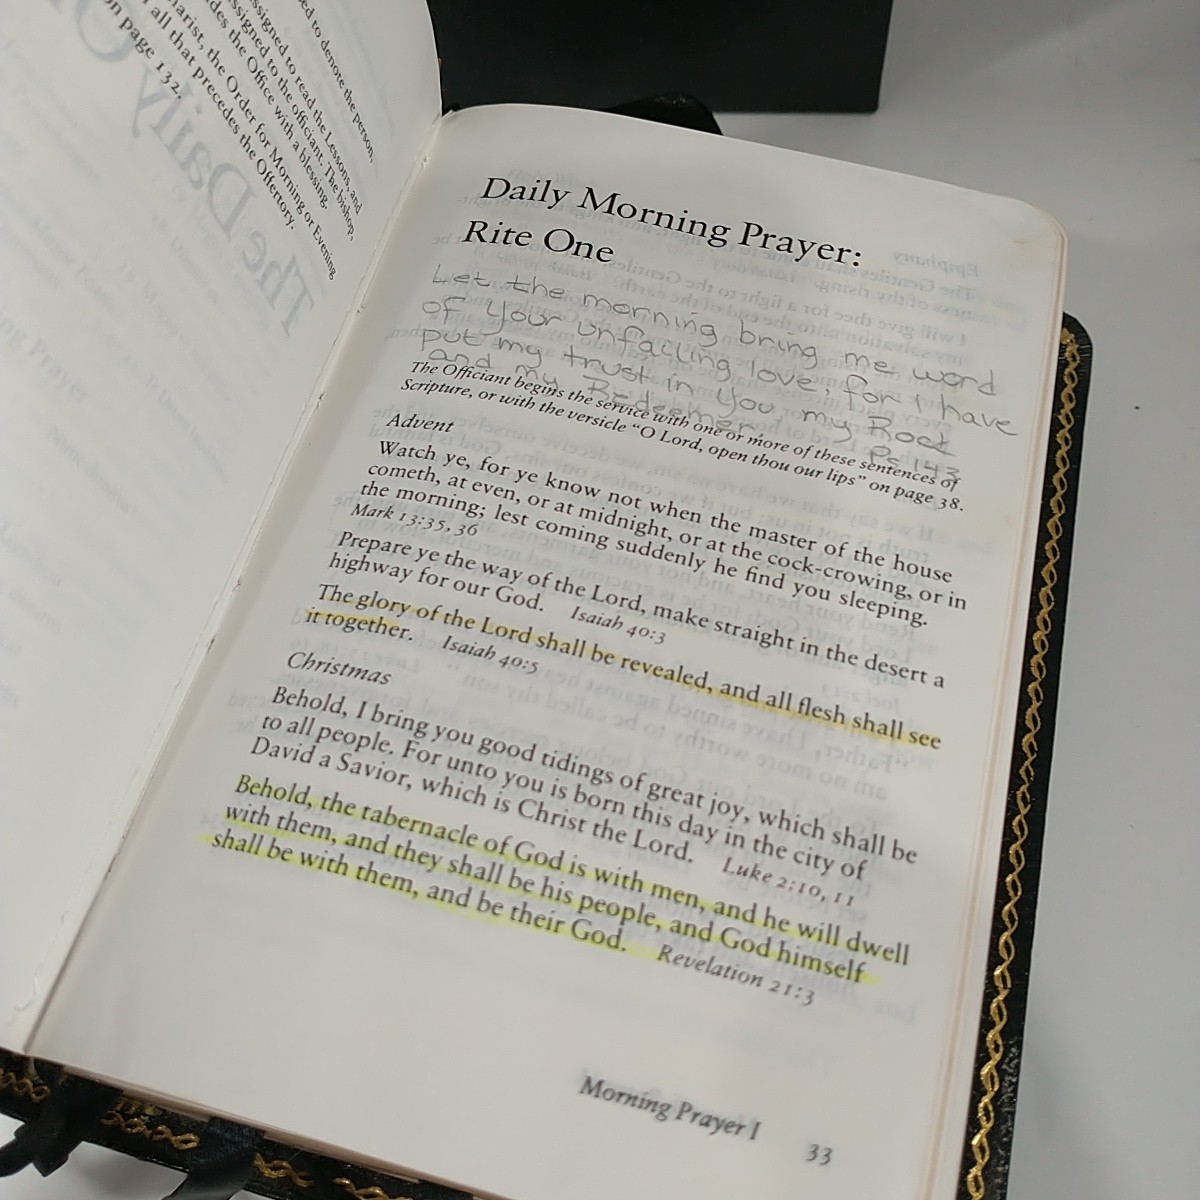 ed to denote the person,
ssigned to read the Lessons, and
ssigned to the officiant. The bishop,
des the Office with a blessing.
harist, the Order for Morning or Evening
all that precedes the Offertory.
on page 132.
Daily Morning Prayer:
Rite One
Let the morning bring me word
of Your unfailing love, for I have
put my trust in You, my Rock
and my Redeemer. Ps 143
The Officiant begins the service with one or more of these sentences of
Scripture, or with the versicle “O Lord, open thou our lips” on page 38.
Advent
Watch ye, for ye know not when the master of the house
cometh, at even, or at midnight, or at the cock-crowing, or in
the morning; lest coming suddenly he find you sleeping.
Mark 13:35, 36
Prepare ye the way of the Lord, make straight in the desert a
highway for our God. Isaiah 40:3
The glory of the Lord shall be revealed, and all flesh shall see
it together. Isaiah 40:5
Christmas
Behold, I bring you good tidings of great joy, which shall be
to all people. For unto you is born this day in the city of
David a Savior, which is Christ the Lord. Luke 2:10, 11
Behold, the tabernacle of God is with men, and he will dwell
with them, and they shall be his people, and God himself
shall be with them, and be their God. Revelation 21:3
Morning Prayer I 33